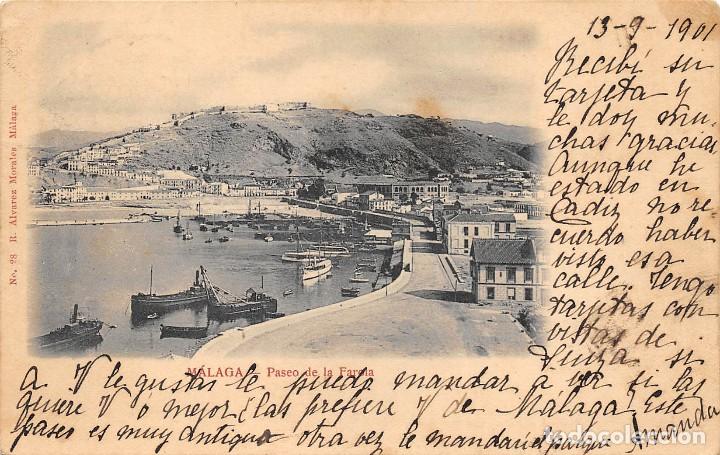 13-9-1901
Recibí su
tarjeta y
le doy mu-
chas gracias
Aunque he
estado en
Cadiz no re
cuerdo haber
visto esa
calle. Tengo
tarjetas con
vistas de
si
No. 28 R. Alvarez Morales Málaga
MÁLAGA - Paseo de la Farola
A V le gustas le puedo mandar a ver si las
quiere V ó mejor las prefiere V de Málaga. Este
pases es muy antiguo otra vez le mandaré
Amanda
todocoleccion